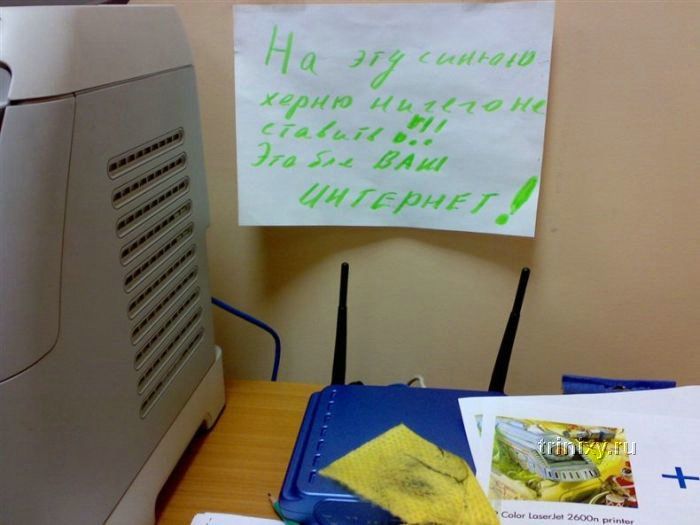 На эту синюю
херню ничего не
ставить!!!
Это бле ВАШ
ИНТЕРНЕТ!
trinixy.ru
P Color LaserJet 2600n printer
+